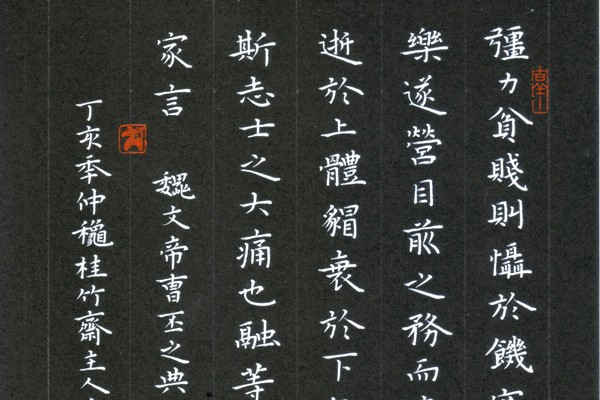 彊力貧賤則懾於饑
樂遂營目前之務而
逝於上體貌衰於下
斯志士之大痛也融等
家言 魏文帝曹丕之典
丁亥季仲穐桂竹齋主人